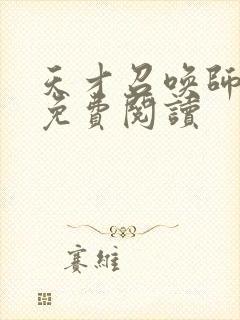 天才召喚師
免費閱讀
賽維